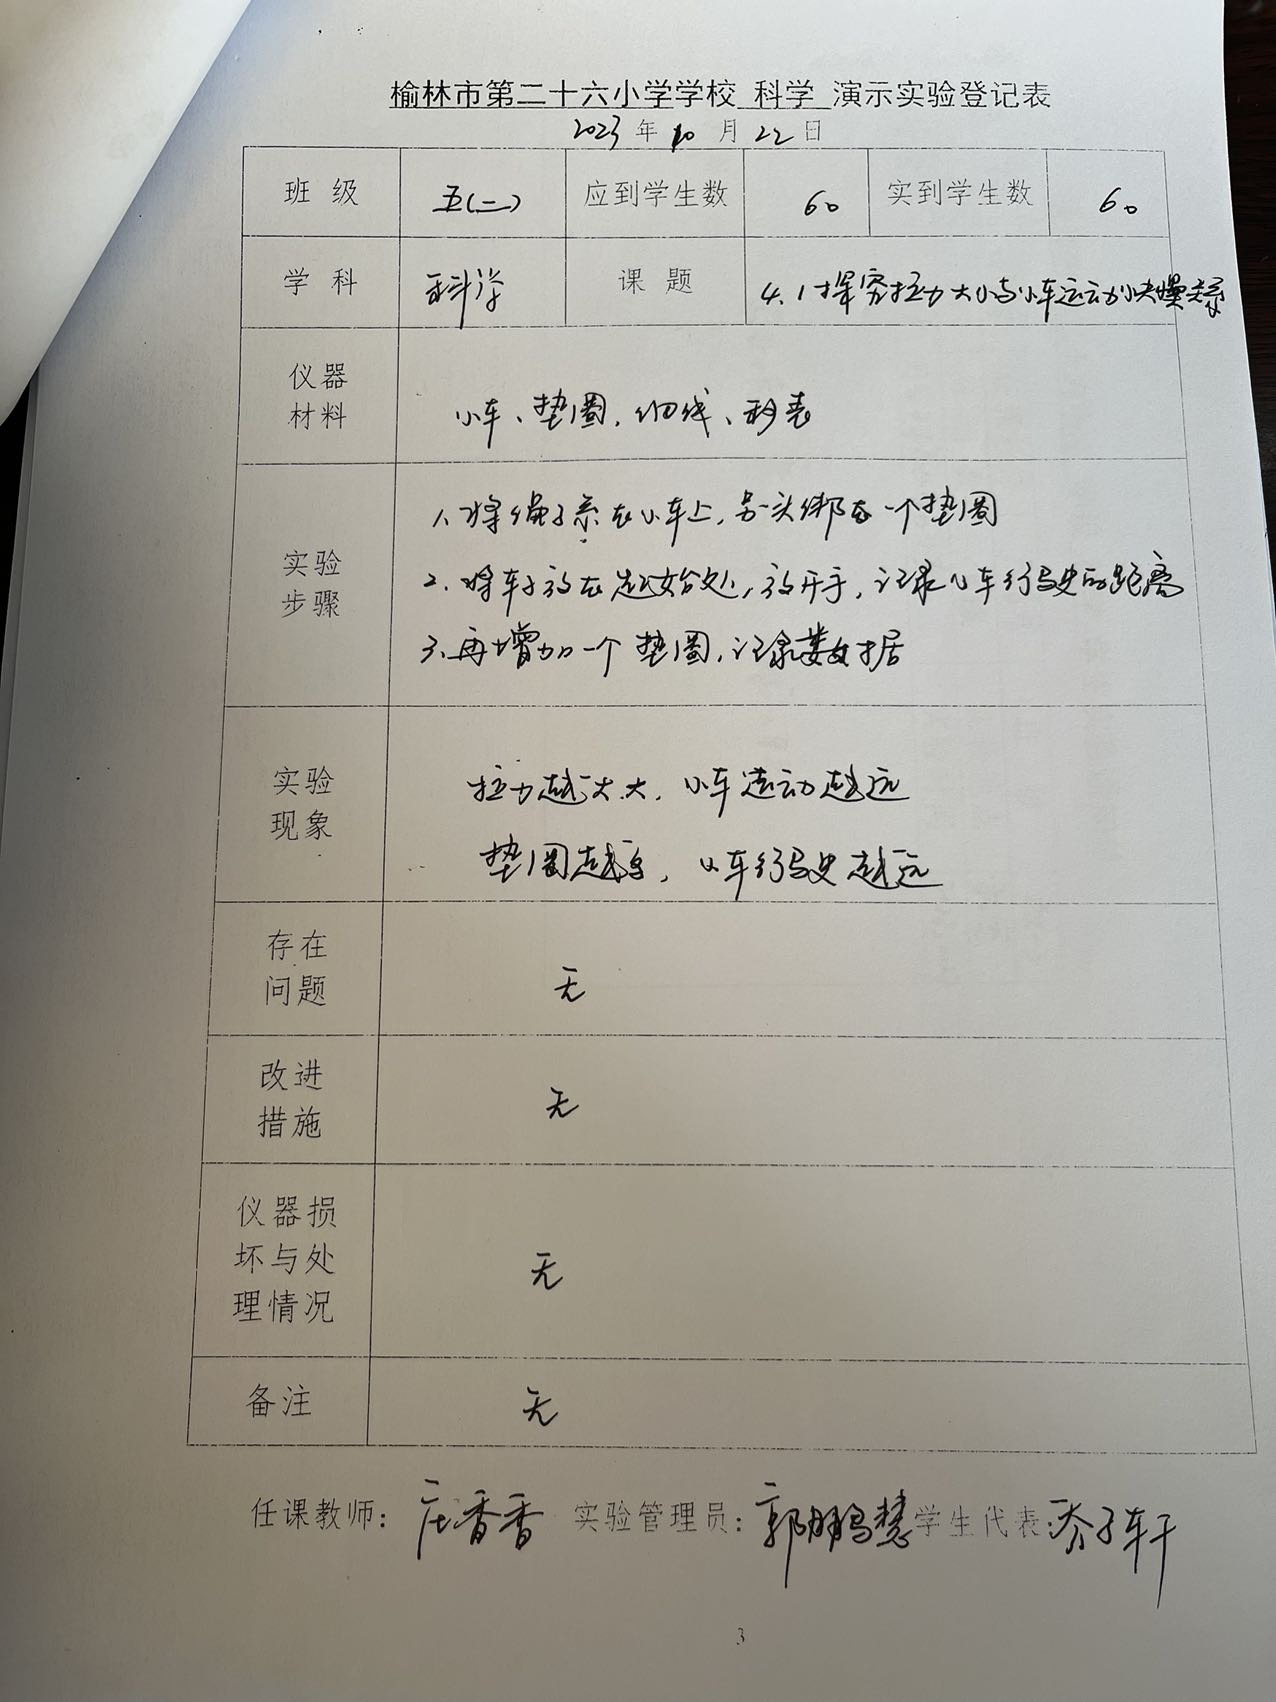 榆林市第二十六小学学校 科学 演示实验登记表
2023 年 10 月 22 日
班 级 五(二) 应到学生数 60 实到学生数 60
学 科 科学 课 题 4.1探究拉力大小与小车运动快慢关系
仪器
材料
小车、垫圈、细线、秒表
实验
步骤
1、将绳子系在小车上,另一头绑在一个垫圈
2、将车子放在起始处,放开手,记录小车行驶的距离
3、再增加一个垫圈,记录数据
实验
现象
拉力越大大,小车运动越远
垫圈越多,小车行驶越远
存在
问题
无
改进
措施
无
仪器损
坏与处
理情况
无
备注 无
任课教师: 庄香香 实验管理员: 郭鹏慧 学生代表: 乔子轩
3